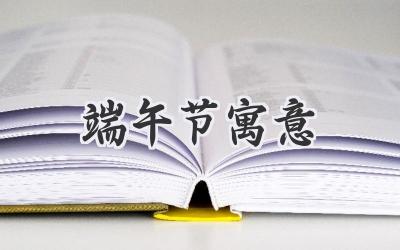 端午节寓意